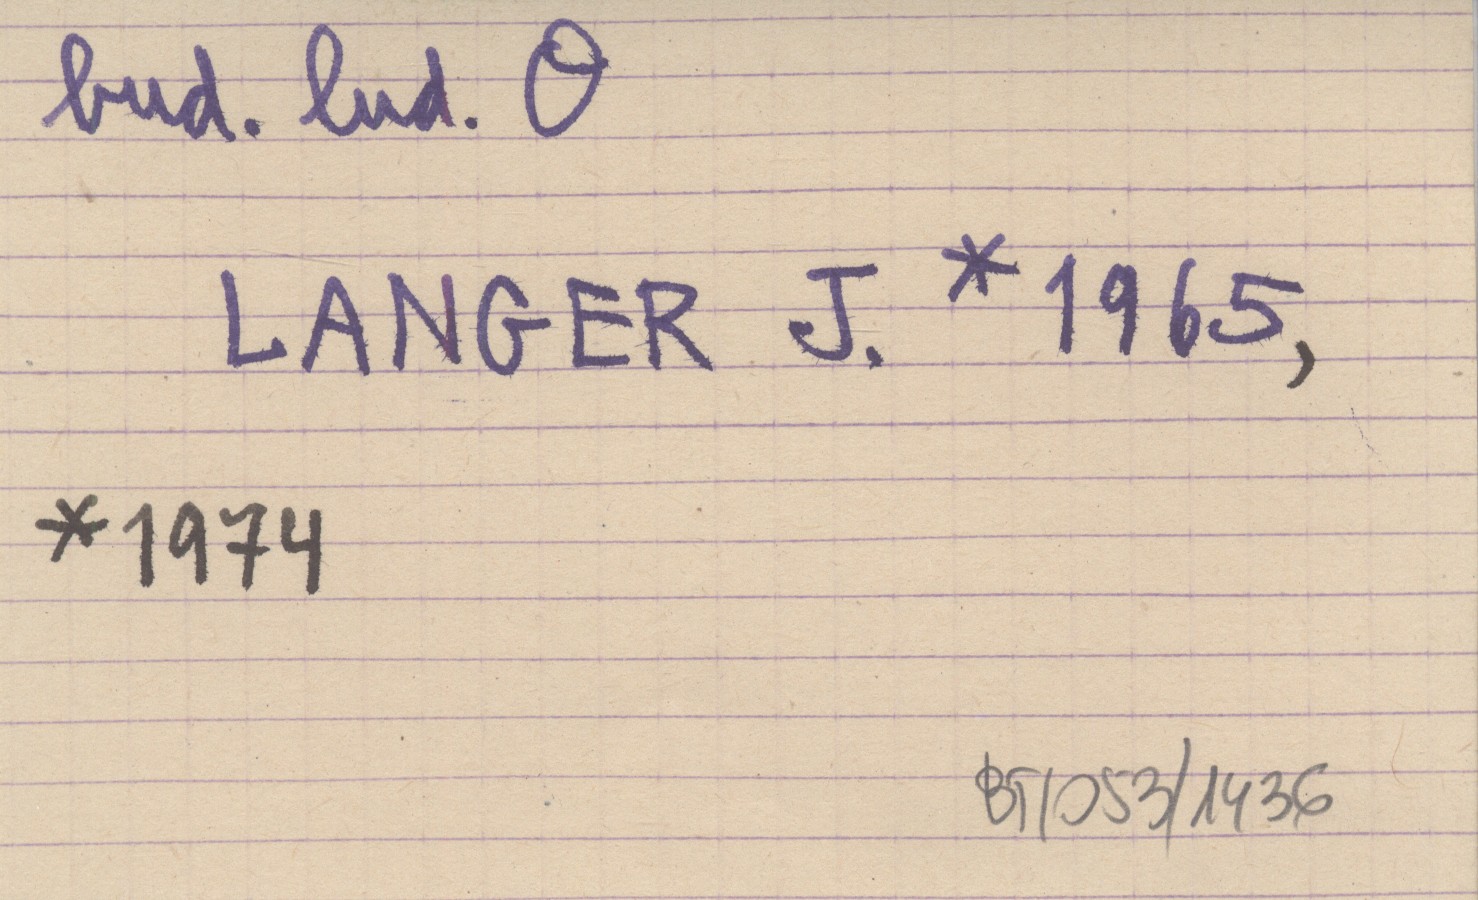 bud. lud. O
LANGER J. *1965,
*1974
BT/053/1436